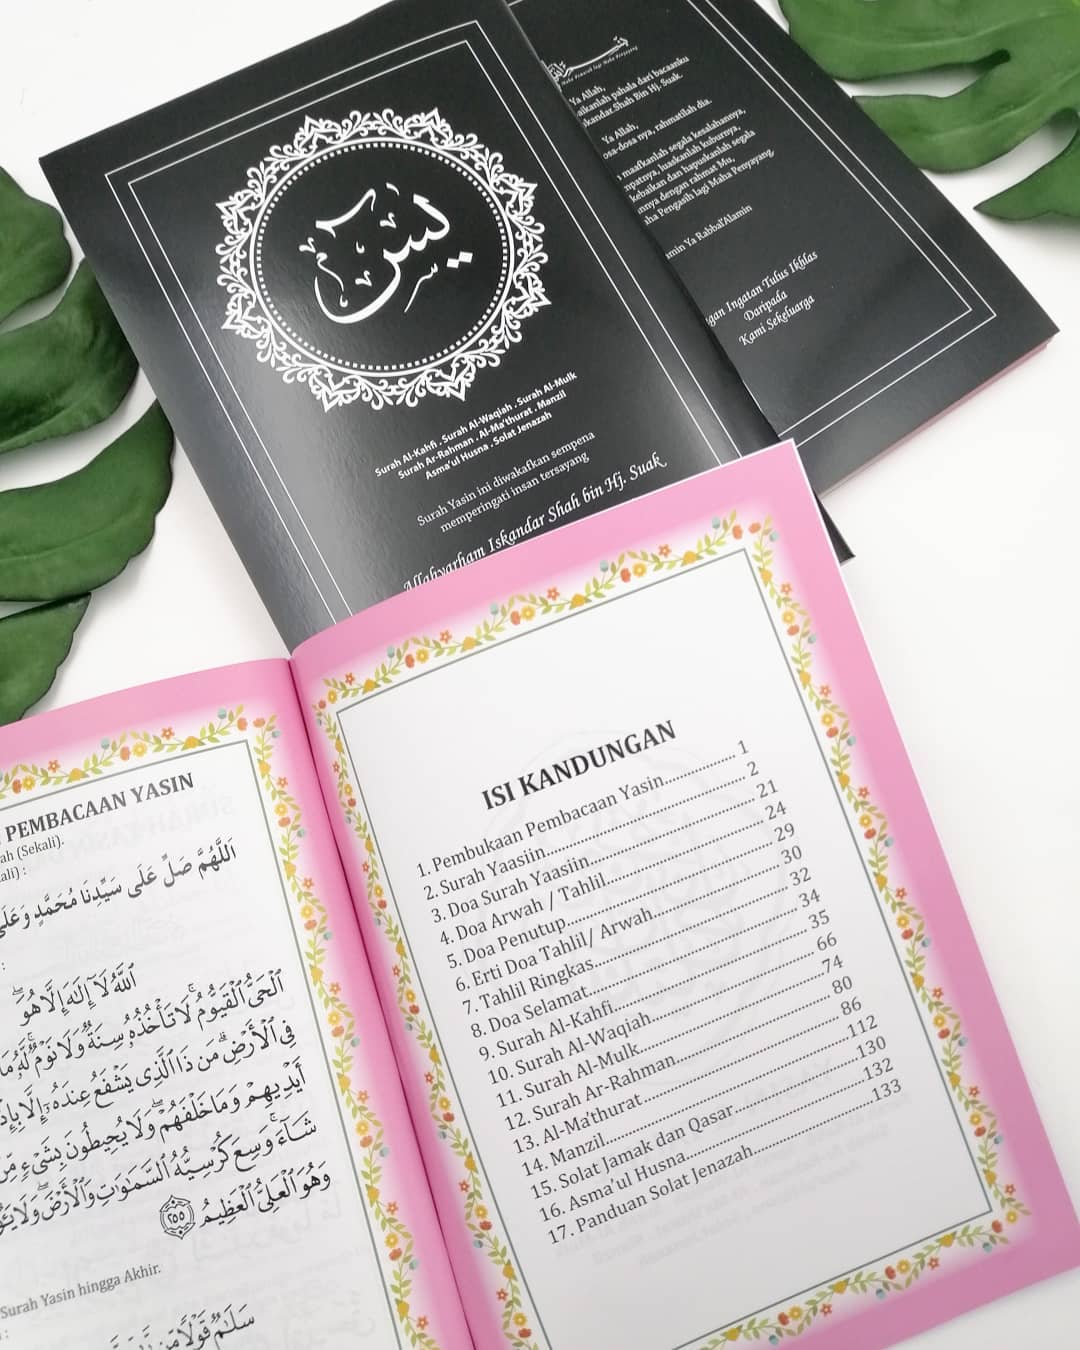 يس
Surah Al-Kahfi . Surah Al-Waqiah . Surah Al-Mulk
Surah Ar-Rahman . Al-Ma'thurat . Manzil
Asma'ul Husna . Solat Jenazah
Surah Yasin ini diwakafkan sempena
memperingati insan tersayang
Allahyarham Iskandar Shah bin Hj. Suak
Maha Pemurah lagi Maha Penyayang
Ya Allah,
pahala dari bacaanku
Shah Bin Hj. Suak.
Ya Allah,
nya, rahmatilah dia.
maafkanlah segala kesalahannya,
luaskanlah kuburnya,
kebaikan dan hapuskanlah segala
dengan rahmat Mu,
Pengasih lagi Maha Penyayang.
Ya Rabbal'Alamin
Ingatan Tulus Ikhlas
Daripada
Kami Sekeluarga
PEMBACAAN YASIN
(Sekali).
اَللَّهُمَّ صَلِّ عَلَى سَيِّدِنَا مُحَمَّدٍ
ٱللَّهُ لَآ إِلَـٰهَ إِلَّا هُوَ
ٱلْحَىُّ ٱلْقَيُّومُ ۚ لَا تَأْخُذُهُۥ سِنَةٌ وَلَا نَوْمٌ ۚ لَّهُۥ مَا
فِى ٱلْأَرْضِ ۗ مَن ذَا ٱلَّذِى يَشْفَعُ عِندَهُۥٓ إِلَّا
أَيْدِيهِمْ وَمَا خَلْفَهُمْ ۖ وَلَا يُحِيطُونَ بِشَىْءٍ
شَآءَ ۚ وَسِعَ كُرْسِيُّهُ ٱلسَّمَـٰوَٰتِ وَٱلْأَرْضَ ۖ وَلَا
وَهُوَ ٱلْعَلِىُّ ٱلْعَظِيمُ ٢٥٥
Surah Yasin hingga Akhir.
سَلَـٰمٌ قَوْلًا مِّن
ISI KANDUNGAN
1. Pembukaan Pembacaan Yasin.................. 1
2. Surah Yaasiin.................. 2
3. Doa Surah Yaasiin.................. 21
4. Doa Arwah / Tahlil.................. 24
5. Doa Penutup.................. 29
6. Erti Doa Tahlil/ Arwah.................. 30
7. Tahlil Ringkas.................. 32
8. Doa Selamat.................. 34
9. Surah Al-Kahfi.................. 35
10. Surah Al-Waqiah.................. 66
11. Surah Al-Mulk..................74
12. Surah Ar-Rahman.................. 80
13. Al-Ma'thurat.................. 86
14. Manzil.................. 112
15. Solat Jamak dan Qasar..................130
16. Asma'ul Husna.................. 132
17. Panduan Solat Jenazah..................133